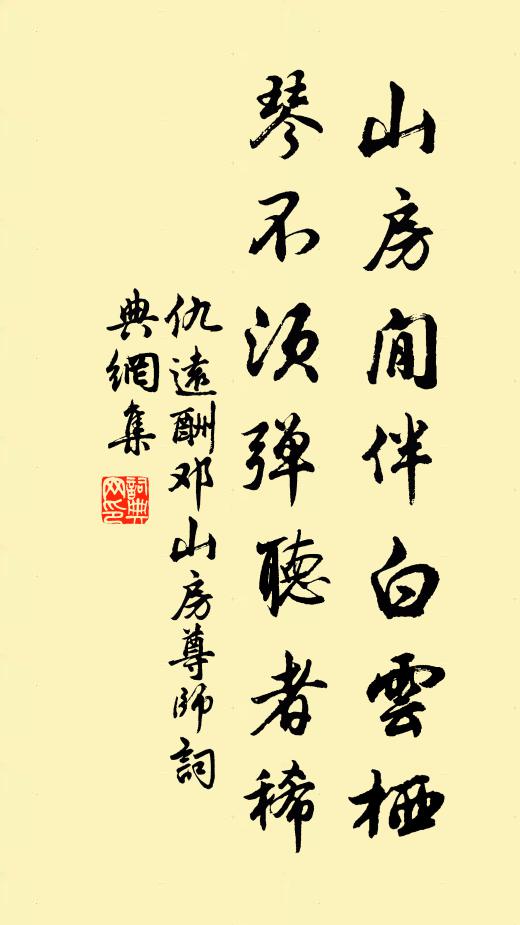 山房閒伴白雲栖
琴不須弹聽者稀
仇遠酬邓山房尊師詞
典網集
詞典网印